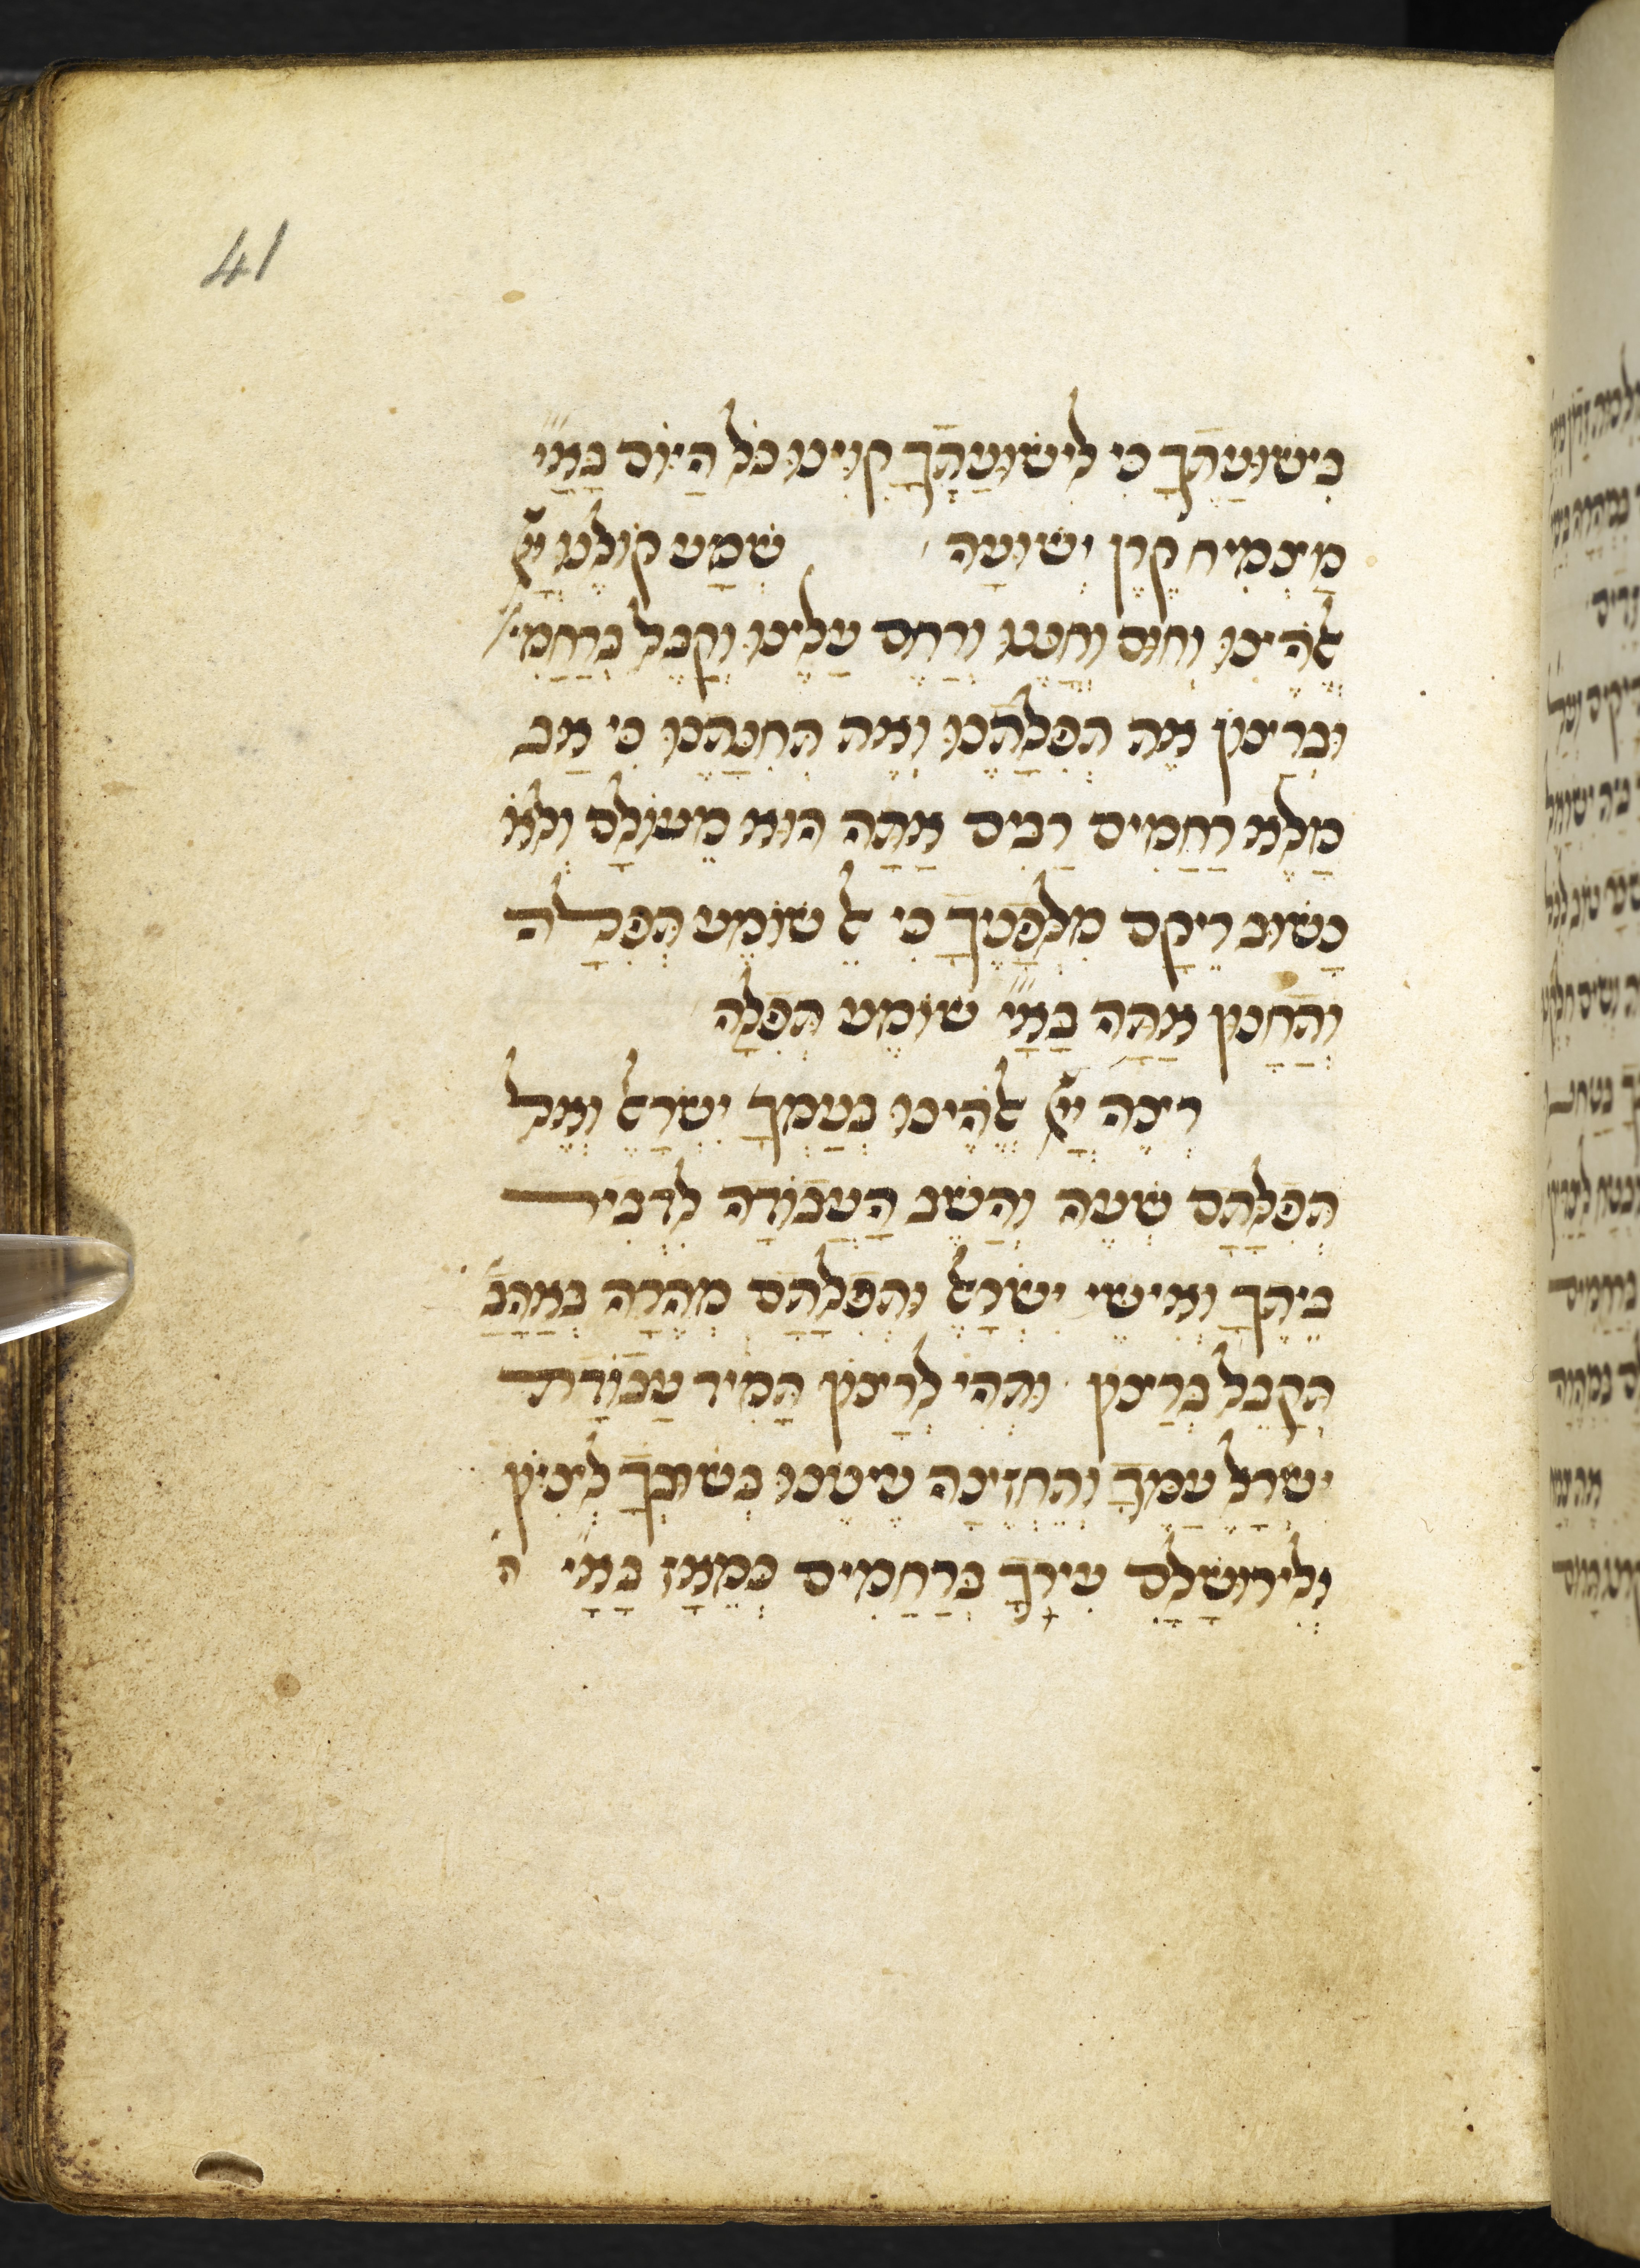 41
בִישׁוּעַתֶךָ כִי לִישׁוּעַתְךָ קִוִינוּ כֹל הַיוֹם בָאַ״יֿ
מַצְמִיחַ קֶרֶן יְשׁוּעָה שְׁמַע קוֹלֵנוּ יְיָ
אֱלֹהֵינוּ וְחוּס וְחָנֵנוּ וְרַחֵם עָלֵינוּ וְקַבֵל בְרַחֲמִי׳
וּבְרָצוֹן אֶת תְפִלָתֵנוּ וְאֶת תְחִנָתֵנוּ כִי אַב
מָלֵא רַחֲמִים רַבִים אַתָה הוּא מֵעוֹלָם וְלֹא
נָשׁוּב רֵיקָם מִלְפָנֶיךָ כִי אֵל שׁוֹמֵעַ תְפִלָה
וְתַחֲנוּן אַתָה בָאַ״יֿ שׁוֹמֵעַ תְפִלָה
רְצֵה יְיָ אֱלֹהֵינוּ בְעַמְךָ יִשְׂרָאֵל וְאֶל
תְפִלָתָם שְׁעֵה וְהָשֵׁב הָעֲבוֹדָה לִדְבִיר
בֵיתֶךָ וְאִישֵׁי יִשְׂרָאֵל וּתְפִלָתָם מְהֵרָה בְאַהֲבָ׳
תְקַבֵל בְרָצוֹן וּתְהִי לְרָצוֹן תָמִיד עֲבוֹדַת
יִשְׂרָאֵל עַמֶךָ וְתֶחֱזֶינָה עֵינֵנוּ בְשׁוּבְךָ לְצִיוֹן
וְלִירוּשָׁלַםִ עִירֶךָ בְרַחֲמִים כְמֵאָז בָאַ״י ה׳